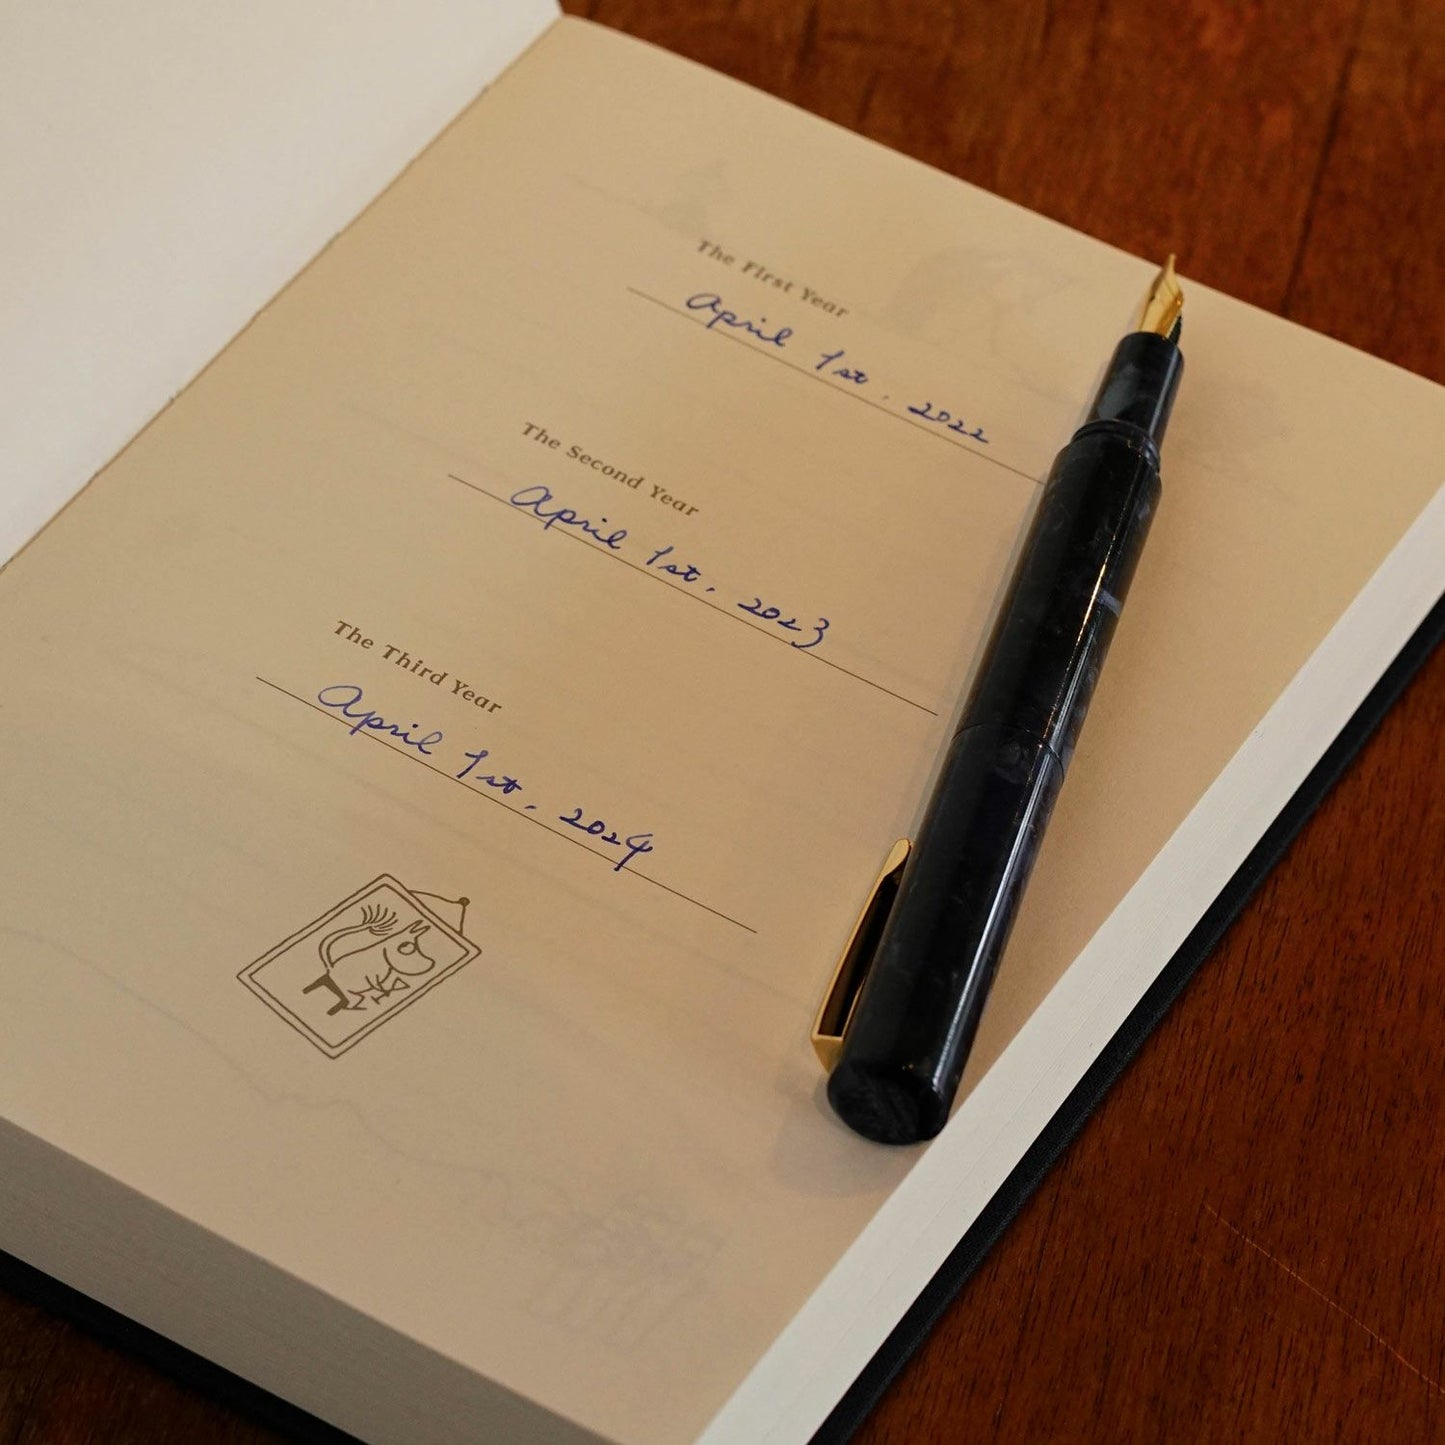 The First Year
April 1st, 2022
The Second Year
April 1st, 2023
The Third Year
April 1st, 2024